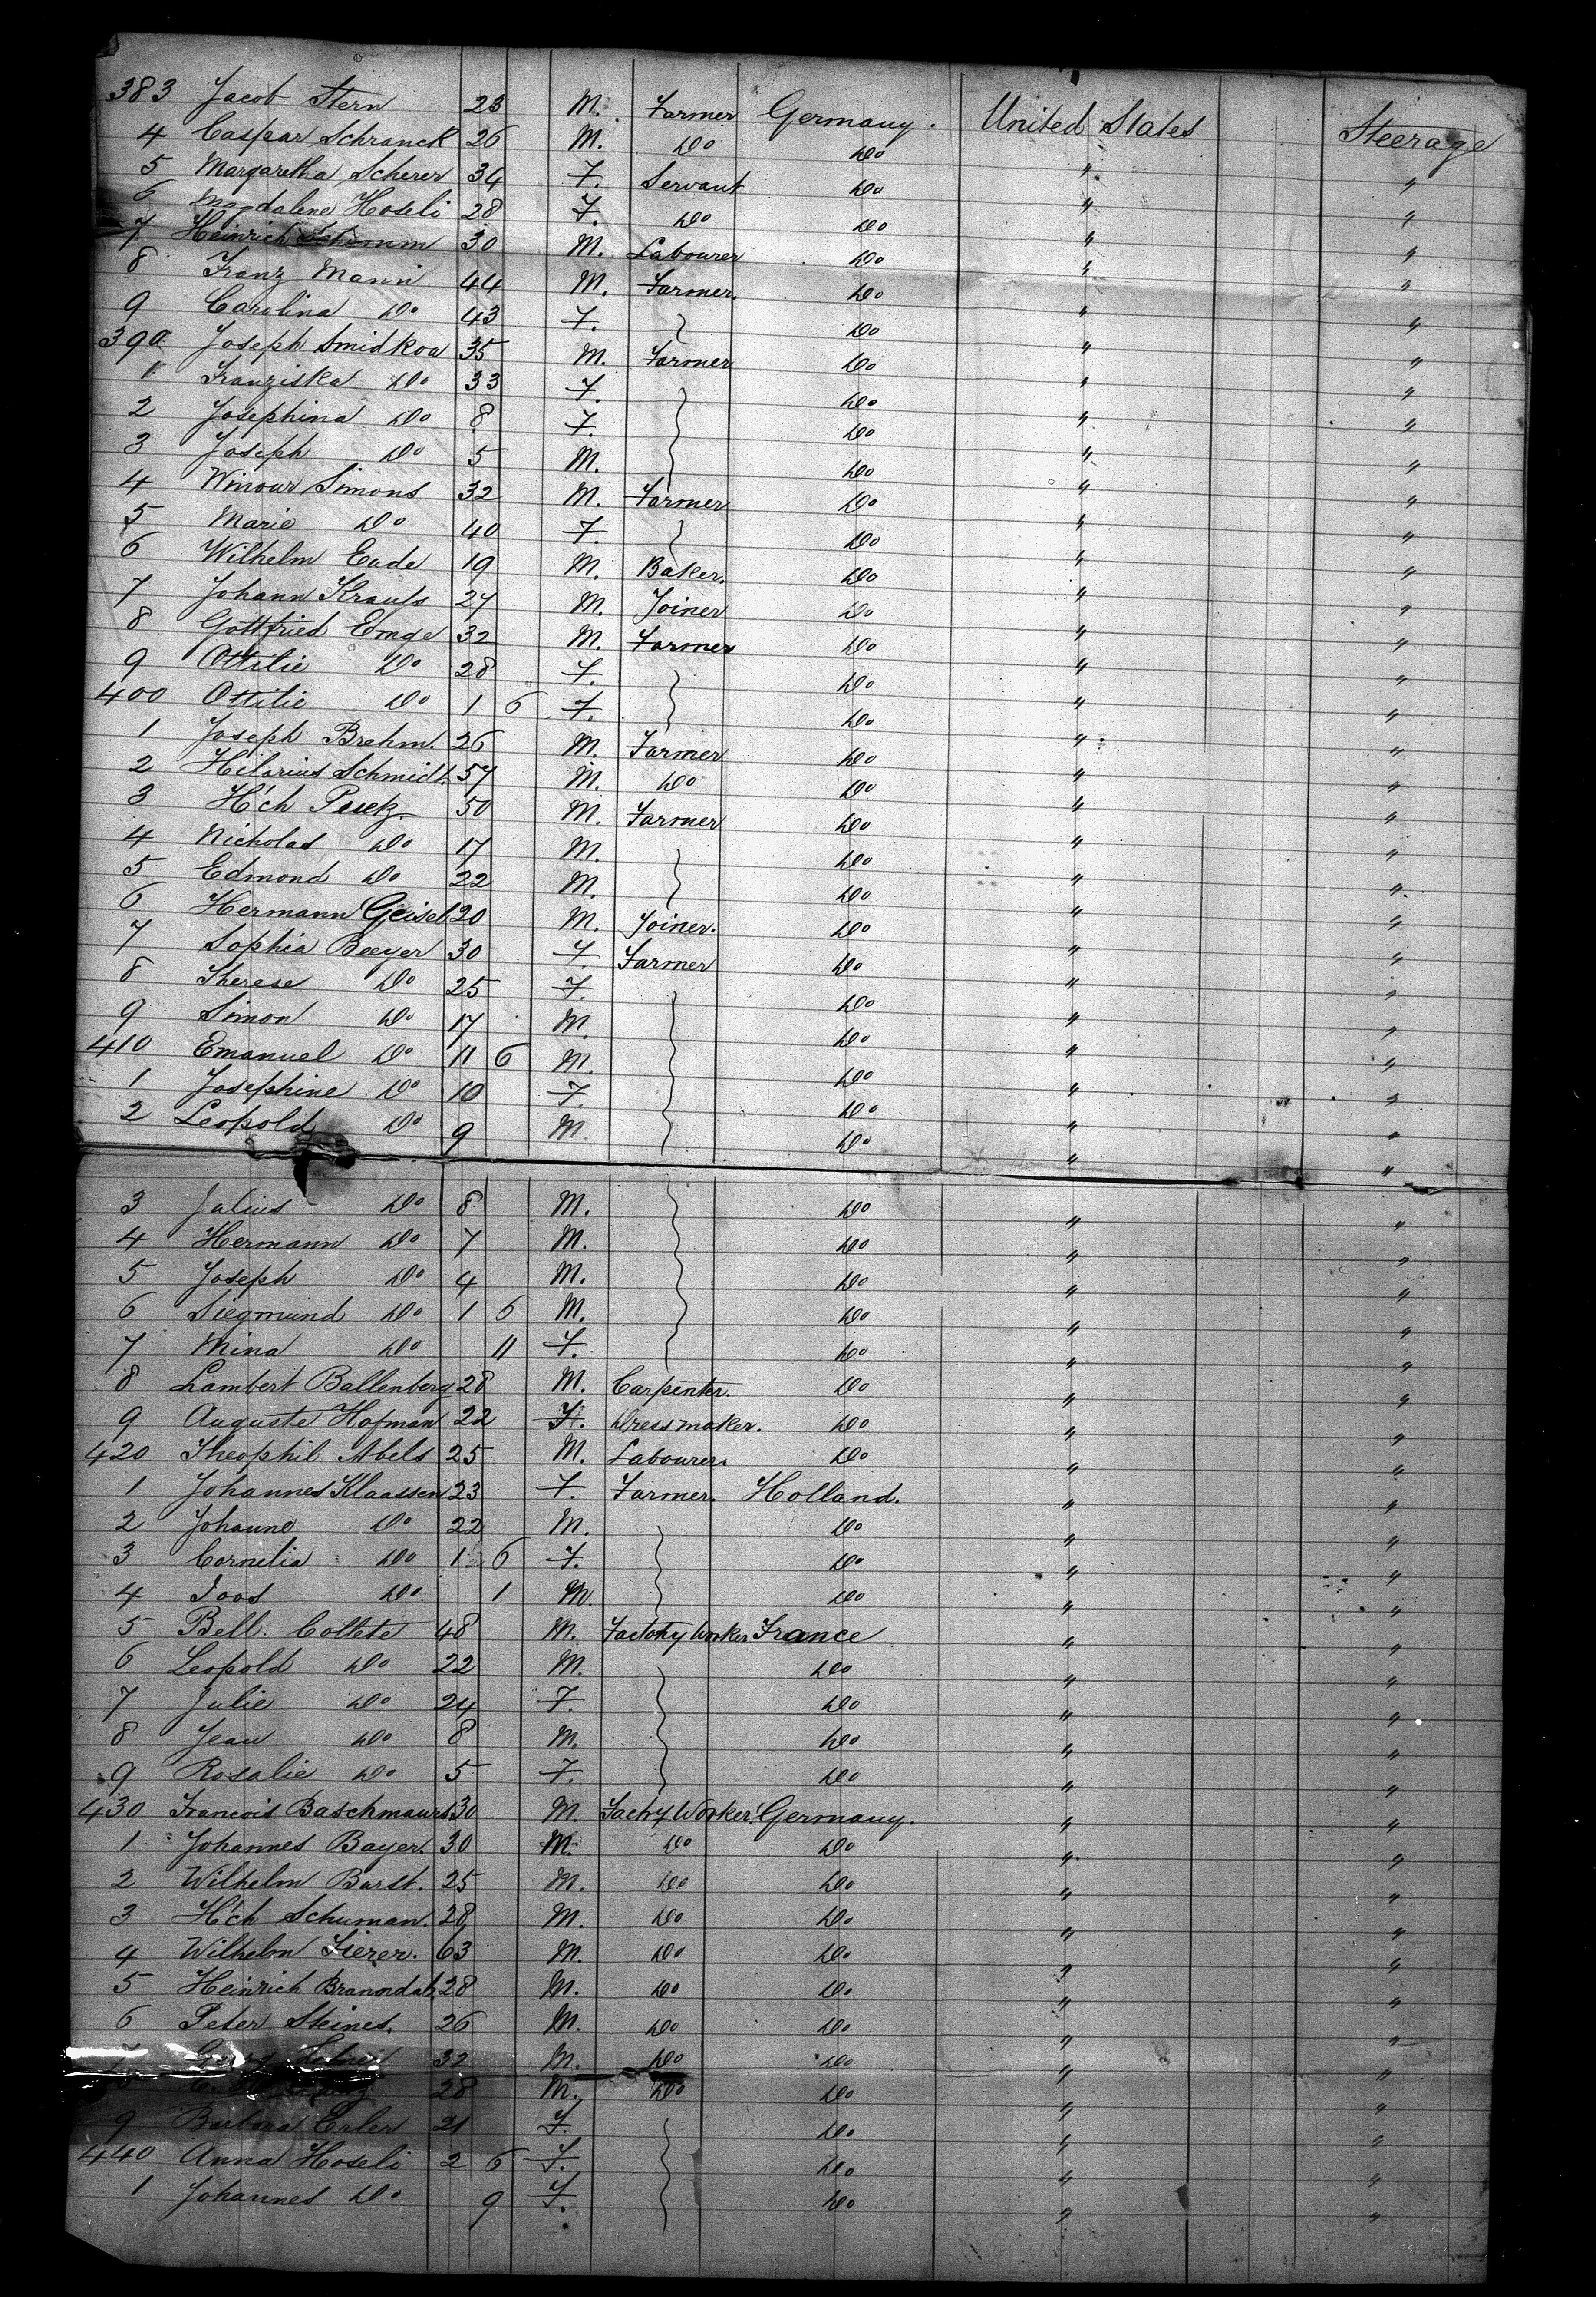 383 Jacob Stern 23 M. Farmer Germany. United States Steerage
4 Caspar Schranck 26 M. Do Do " "
5 Margaretha Scherer 34 F. Servant Do " "
6 Magdalene Hoseli 28 F. Do Do " "
7 Heinrich 30 M. Labourer Do " "
8 Franz Mann 44 M. Farmer. Do " "
9 Carolina Do 43 F. Do " "
390 Joseph Smidkoa 35 M. Farmer Do " "
1 Franziska Do 33 F. Do " "
2 Josephina Do 8 F. Do " "
3 Joseph Do 5 M. Do " "
4 Simons 32 M. Farmer Do " "
5 Marie Do 40 F. Do " "
6 Wilhelm Eade 19 M. Baker. Do " "
7 Johann Krauss 27 M. Joiner Do " "
8 Gottfried Emge 32 M. Farmer Do " "
9 Ottilie Do 28 F. Do " "
400 Ottilie Do 1 6 F. Do " "
1 Joseph Brehm. 26 M. Farmer Do " "
2 Hilarius Schmidt. 57 M. Do Do " "
3 H'ch 50 M. Farmer Do " "
4 Nicholas Do 17 M. Do " "
5 Edmond Do 22 M. Do " "
6 Hermann Geisel 20 M. Joiner. Do " "
7 Sophia Beeyer 30 F. Farmer Do " "
8 Therese Do 25 F. Do " "
9 Simon Do 17 M. Do " "
410 Emanuel Do 11 6 M. Do " "
1 Josephine Do 10 F. Do " "
2 Leopold Do 9 M. Do " "
3 Julius Do 8 M. Do " "
4 Hermann Do 7 M. Do " "
5 Joseph Do 4 M. Do " "
6 Siegmund Do 1 6 M. Do " "
7 Mina Do 11 F. Do " "
8 Lambert Ballenberg 28 M. Carpenter. Do " "
9 Auguste Hofman 22 F. Dressmaker. Do " "
420 Theophil Abels 25 M. Labourer. Do " "
1 Johannes Klaassen 23 F. Farmer. Holland. " "
2 Johanne Do 22 M. Do " "
3 Cornelia Do 1 6 F. Do " "
4 Joos Do 1 M. Do " "
5 Bell. Collete 48 M. Factory Worker France " "
6 Leopold Do 22 M. Do " "
7 Julie Do 24 F. Do " "
8 Jean Do 8 M. Do " "
9 Rosalie Do 5 F. Do " "
430 Francois Baschmaurs 30 M. Factry Worker. Germany. " "
1 Johannes Bayer. 30 M. Do Do " "
2 Wilhelm Barst. 25 M. Do Do " "
3 H'ch Schuman. 28 M. Do Do " "
4 Wilhelm Fierer. 63 M. Do Do " "
5 Heinrich Bramdab. 28 M. Do Do " "
6 Peter Steines. 26 M. Do Do " "
7 32 M. Do Do " "
8 28 M. Do Do " "
9 Barbara Erler 21 F. Do " "
440 Anna Hoseli 2 6 F. Do " "
1 Johannes Do. 9 F. Do " "